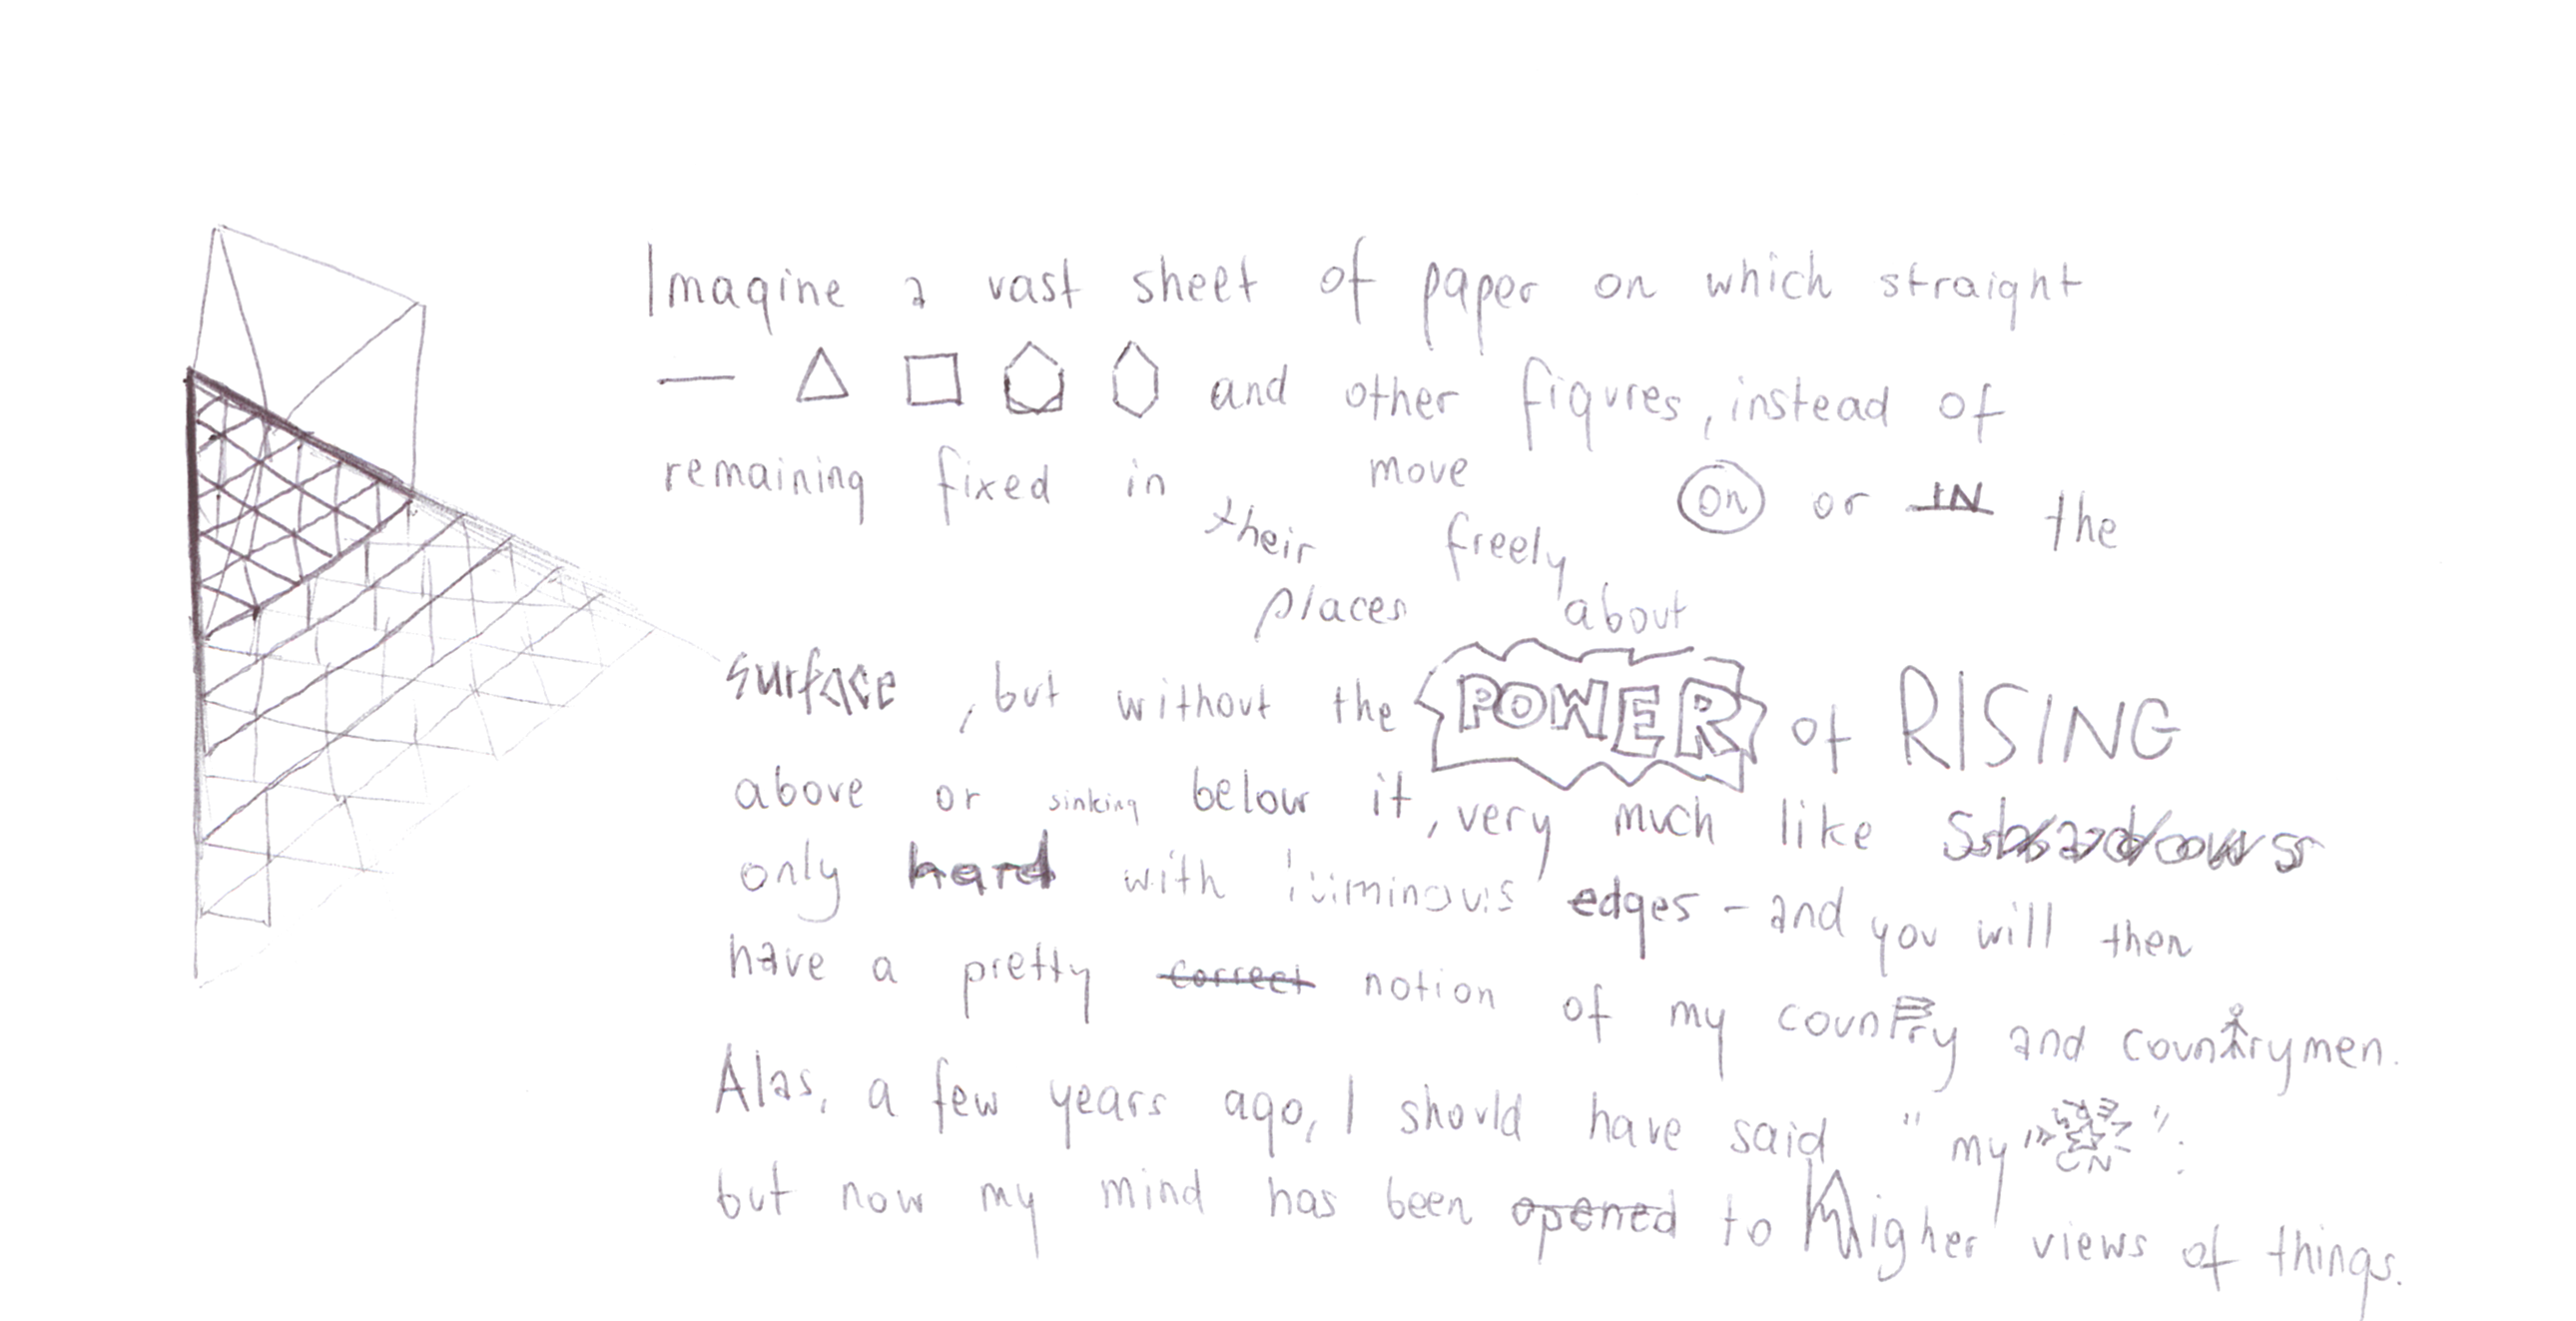 Imagine a vast sheet of paper on which straight
— △ □ ⬠ ⬡ and other figures, instead of
remaining fixed in their places move freely about on or IN the
surface, but without the POWER of RISING
above or sinking below it, very much like shadows
only hard with luminous edges - and you will then
have a pretty correct notion of my country and countrymen.
Alas, a few years ago, I should have said "my ":
but now my mind has been opened to higher views of things.